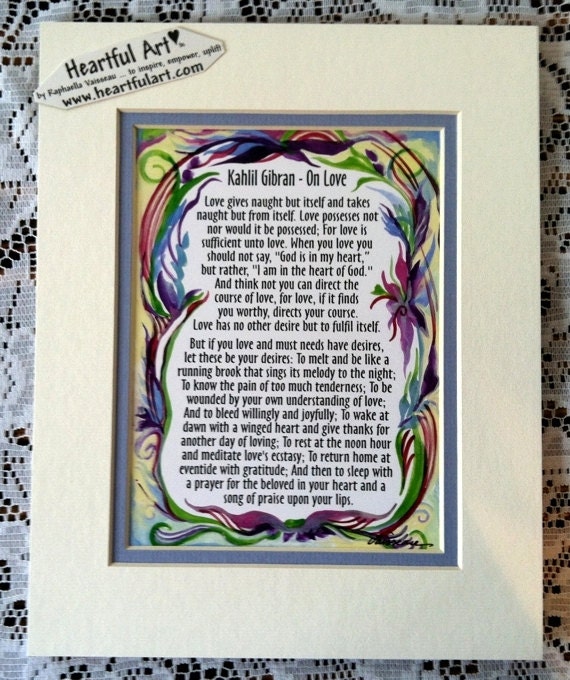 Heartful Art
by Raphaella Vaisseau ... to inspire, empower, uplift
www.heartfulart.com
Kahlil Gibran - On Love
Love gives naught but itself and takes
naught but from itself. Love possesses not
nor would it be possessed; For love is
sufficient unto love. When you love you
should not say, "God is in my heart,"
but rather, "I am in the heart of God."
And think not you can direct the
course of love, for love, if it finds
you worthy, directs your course.
Love has no other desire but to fulfil itself.
But if you love and must needs have desires,
let these be your desires: To melt and be like a
running brook that sings its melody to the night;
To know the pain of too much tenderness; To be
wounded by your own understanding of love;
And to bleed willingly and joyfully; To wake at
dawn with a winged heart and give thanks for
another day of loving; To rest at the noon hour
and meditate love's ecstasy; To return home at
eventide with gratitude; And then to sleep with
a prayer for the beloved in your heart and a
song of praise upon your lips.